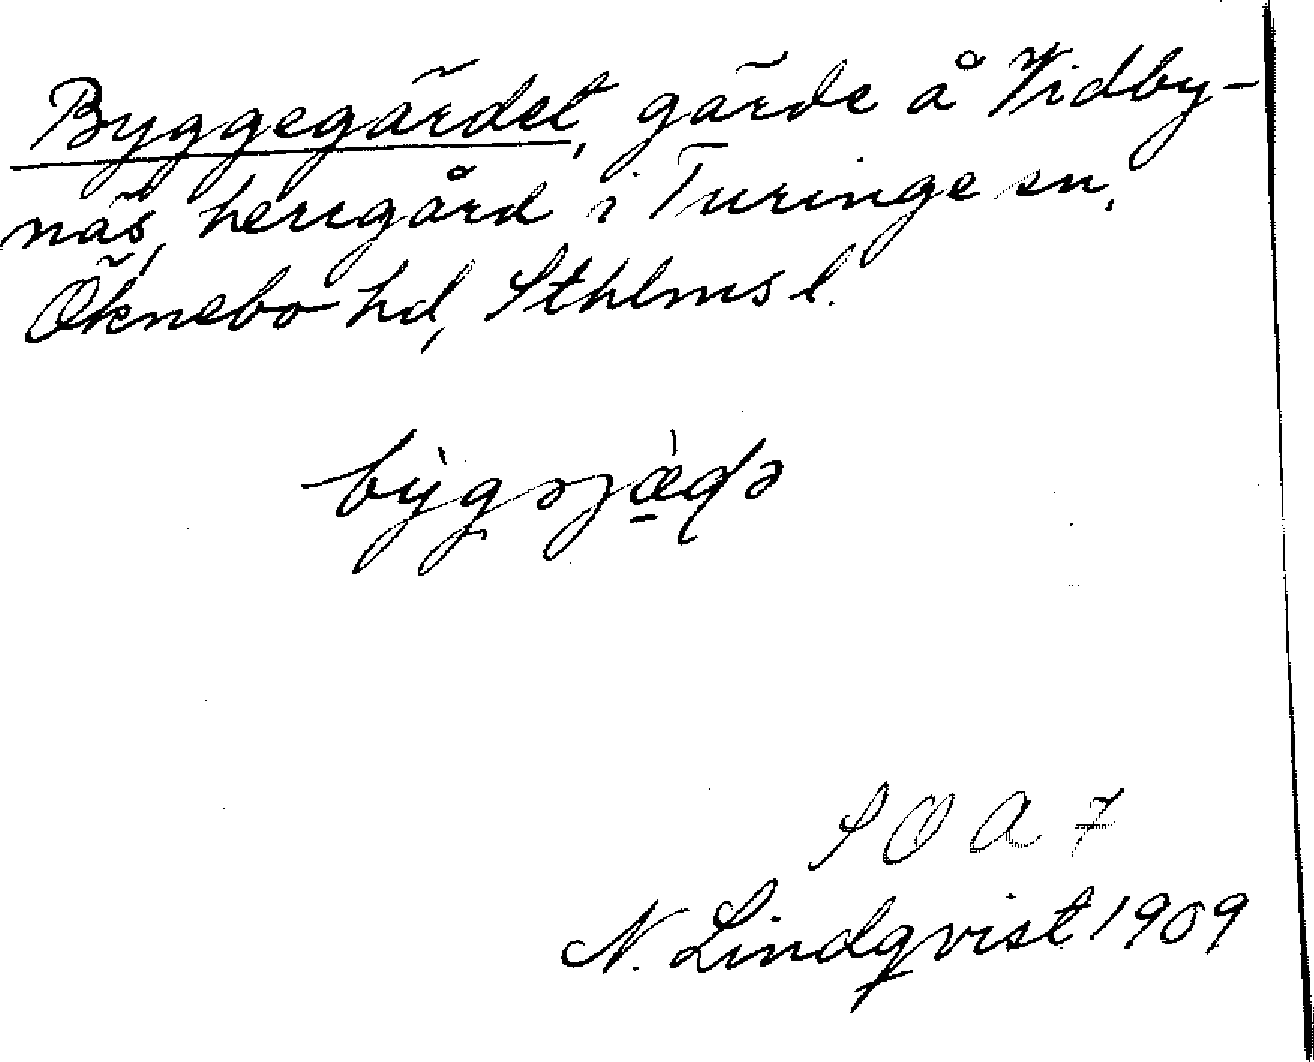 Byggegärdet, gärde å Vidby-
näs, herrgård i Turinge sn,
Öknebo hd, Sthlms l.
bỳgəjæ̀ɖə
SOA 7
N. Lindqvist 1909